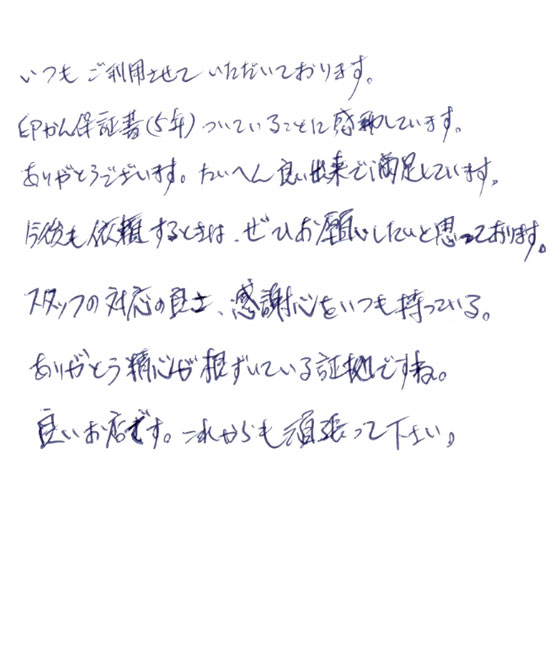 いつもご利用させていただいております。
印かん保証書(5年)ついていることに感動しています。
ありがとうございます。たいへん良い出来で満足しています。
今後も依頼するときは、ぜひお願いしたいと思っております。
スタッフの対応の良さ、感謝心をいつも持っている。
ありがとう精心が根ずいている証拠ですね。
良いお店です。これからも頑張って下さい。